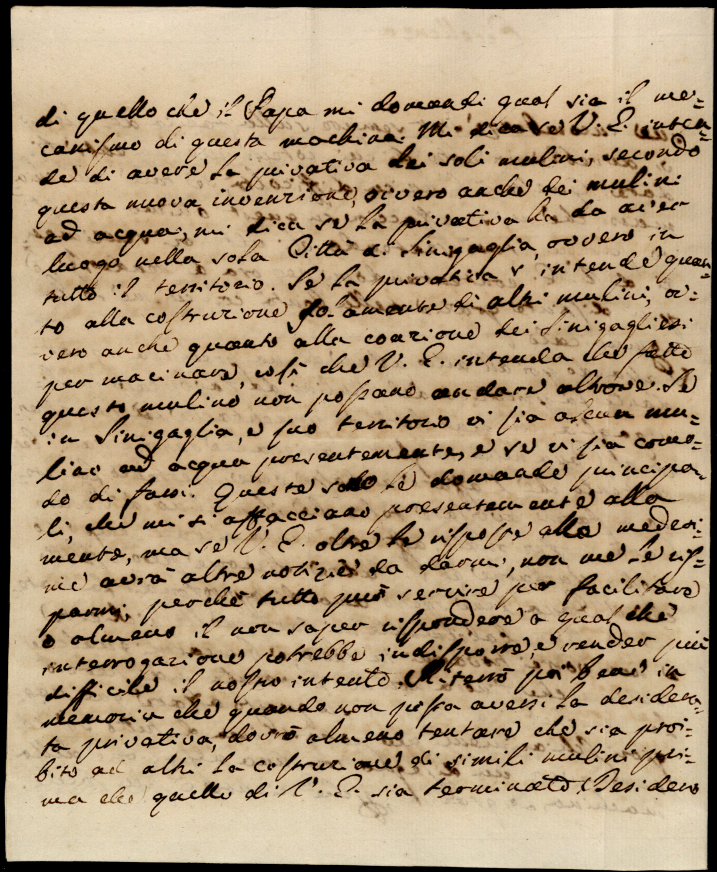 di quello che il Papa mi domandi qual sia il me=
canismo di questa machina. Mi dica se V. E. inten=
de di avere la privativa dei soli mulini, secondo
questa nuova invenzione, ovvero anche dei mulini
ad acqua, mi dica se la privativa ha da aver
luogo nella sola Città di Sinigaglia, ovvero in
tutto il territorio. Se la privativa s'intende quan=
to alla costruzione solamente di altri mulini, ov=
vero anche quanto alla coazione dei Sinigagliesi
per macinare, cosi che V. E. intenda che fatto
questo mulino non possano andare altrove. Se
in Sinigaglia, e suo territorio vi sia alcun mu=
lino ad acqua presentemente, e se vi sia como=
do di farsi. Queste sono le domande principa=
li, che mi si affacciano presentemente alla
mente, ma se V. E. oltre le risposte alle medesi=
me avrà altre notizie da darmi, non me le ris=
parmi, perchè tutto può servire per facilitare
o almeno il non saper rispondere a qual che
interrogazione potrebbe indisporre, e render più
difficile il nostro intento. Riterrò poi bene in
memoria che quando non possa aversi la desidera=
ta privativa, dovrò almeno tentare che sia proi=
bito ad altri la costruzione di simili mulini pri=
ma che quello di V. E. sia terminato. Desidero